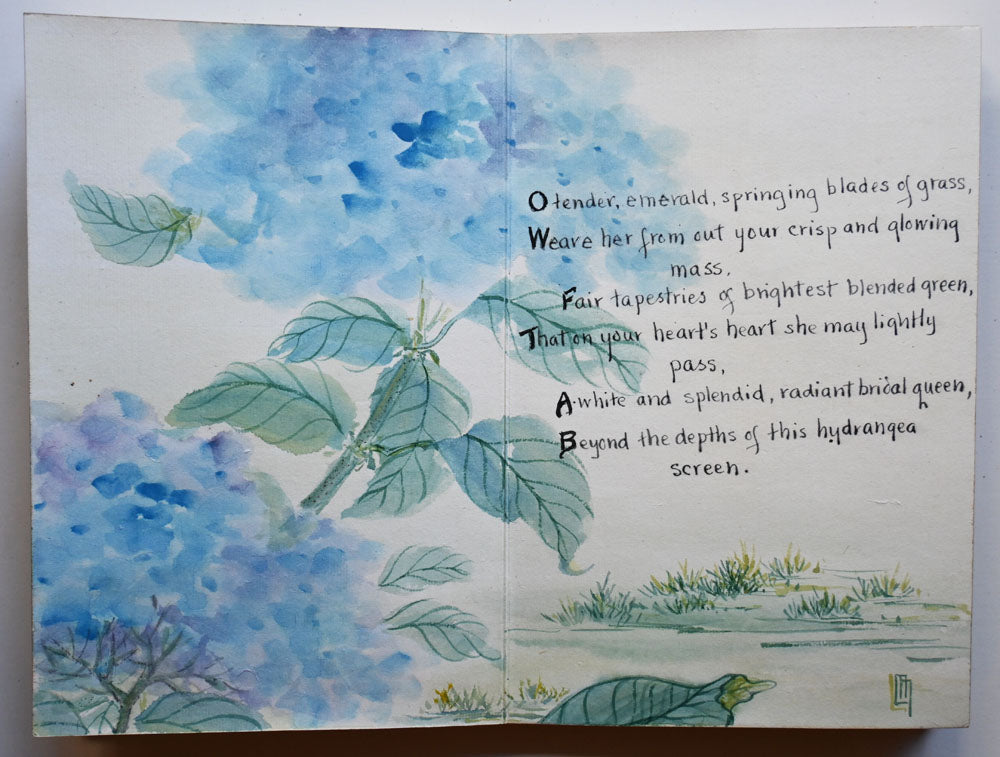 O tender, emerald, springing blades of grass,
Weave her from out your crisp and glowing
mass,
Fair tapestries of brightest blended green,
That on your heart's heart she may lightly
pass,
A white and splendid, radiant bridal queen,
Beyond the depths of this hydrangea
screen.